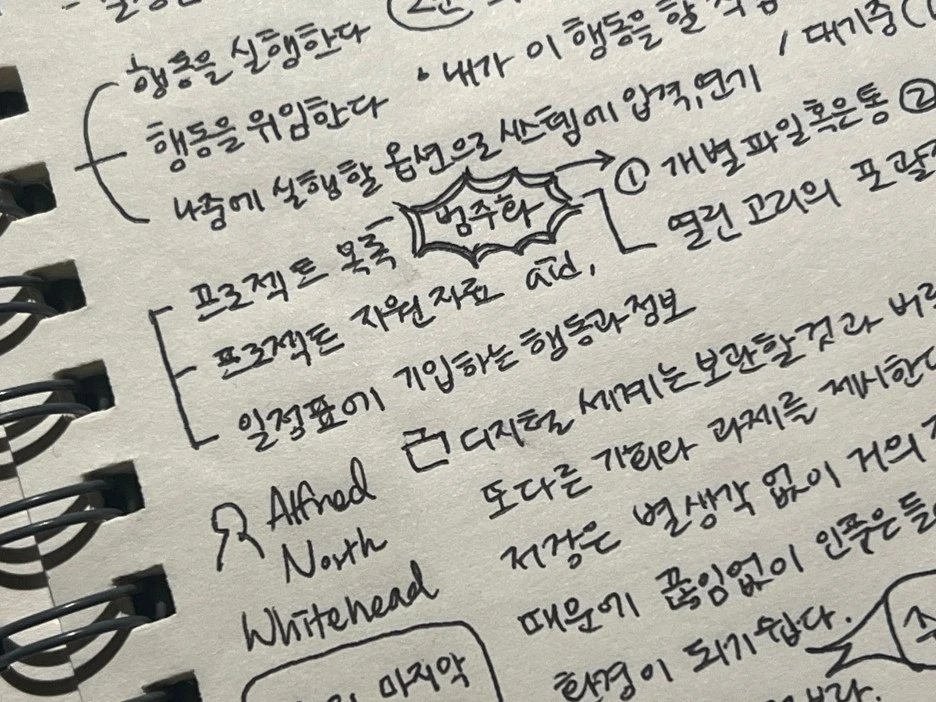 행동을 실행한다
행동을 위임한다 • 내가 이 행동을 할
나중에 실행할 옵션으로 시스템에 입력, 연기 / 대기중
범주화 → ① 개별 파일 혹은 통 ②
열린 고리의 포괄
프로젝트 목록
프로젝트 지원 자료 aid,
일정표에 기입하는 행동과 정보
디지털 세계는 보관할 것과 버
또다른 기회와 과제를 제시한다
저장은 별생각 없이 거의
때문에 끊임없이 인풋은 들
환경이 되기 쉽다.
Alfred
North
Whitehead
마지막